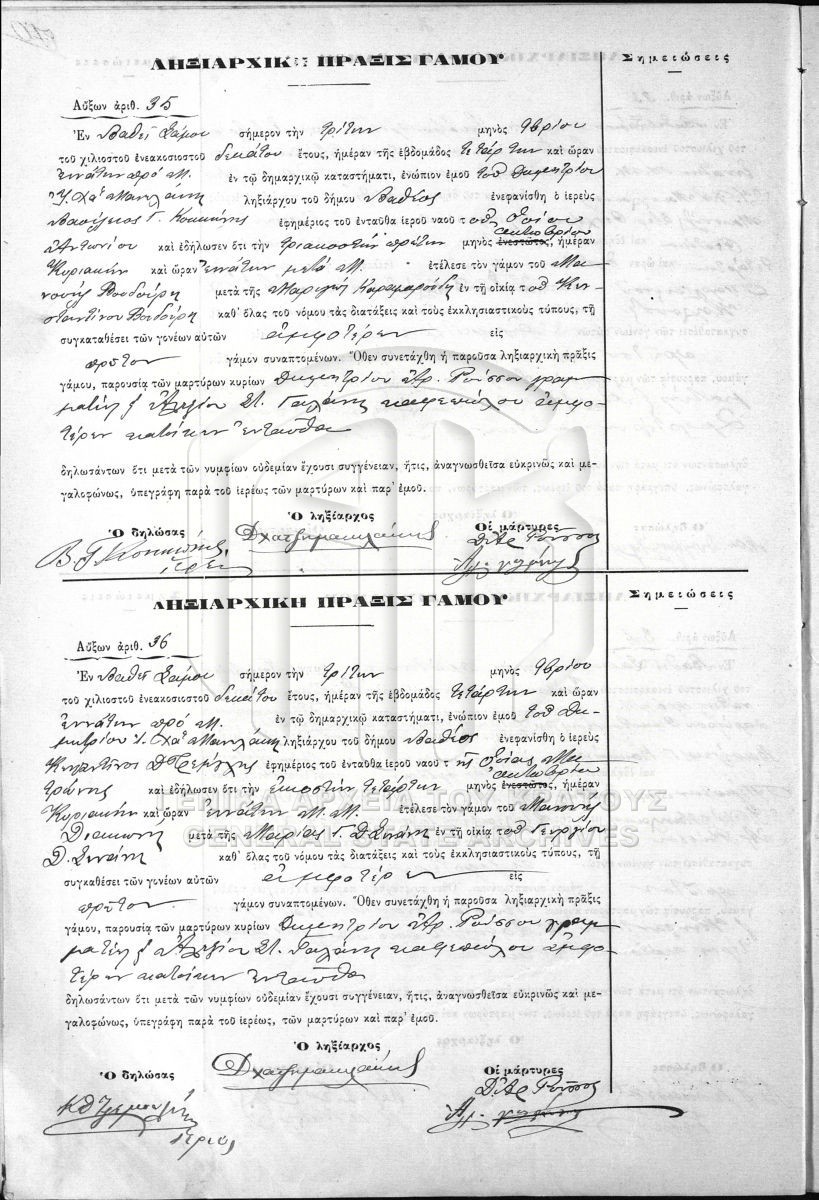 ΛΗΞΙΑΡΧΙΚΗ ΠΡΑΞΙΣ ΓΑΜΟΥ
Σημειώσεις
Αὔξων ἀριθ. 35
Ἐν Βαθεῖ Σάμου σήμερον τὴν τρίτην μηνὸς 9βρίου
τοῦ χιλιοστοῦ ἐνεακοσιοστοῦ δεκάτου ἔτους, ἡμέραν τῆς ἑβδομάδος τετάρτην καὶ ὥραν
ἐννάτην πρὸ Μ. ἐν τῷ δημαρχικῷ καταστήματι, ἐνώπιον ἐμοῦ τοῦ Δημητρίου
ληξιάρχου τοῦ δήμου Βαθέος ἐνεφανίσθη ὁ ἱερεὺς
Βασίλειος Γ. ἐφημέριος τοῦ ἐνταῦθα ἱεροῦ ναοῦ τοῦ Ὁσίου
Ἀντωνίου καὶ ἐδήλωσεν ὅτι τὴν τριακοστὴν πρώτην μηνὸς ἐνεστῶτος, ὀκτωβρίου ἡμέραν
Κυριακὴν καὶ ὥραν ἐννάτην μετὰ Μ. ἐτέλεσε τὸν γάμον τοῦ
μετὰ τῆς ἐν τῇ οἰκίᾳ τοῦ Κων
σταντίνου καθ' ὅλας τοῦ νόμου τὰς διατάξεις καὶ τοὺς ἐκκλησιαστικοὺς τύπους, τῇ
συγκαταθέσει τῶν γονέων αὐτῶν ἀμφοτέρων εἰς
πρῶτον γάμον συναπτομένων. Ὅθεν συνετάχθη ἡ παροῦσα ληξιαρχικὴ πρᾶξις
γάμου, παρουσίᾳ τῶν μαρτύρων κυρίων Δημητρίου Ἀρ. Ῥούσσου γραμ
ματέως Ἀλεξίου Στ. Γαλάνη καφεπώλου ἀμφο-
τέρων κατοίκων ἐνταῦθα
δηλωσάντων ὅτι μετὰ τῶν νυμφίων οὐδεμίαν ἔχουσι συγγένειαν, ἥτις, ἀναγνωσθεῖσα εὐκρινῶς καὶ με-
γαλοφώνως, ὑπεγράφη παρὰ τοῦ ἱερέως τῶν μαρτύρων καὶ παρ' ἐμοῦ.
Ὁ δηλώσας Ὁ ληξίαρχος Οἱ μάρτυρες
Δ. Ἀρ Ροῦσσος
ΛΗΞΙΑΡΧΙΚΗ ΠΡΑΞΙΣ ΓΑΜΟΥ
Σημειώσεις
Αὔξων ἀριθ. 36
Ἐν Βαθεῖ Σάμου σήμερον τὴν τρίτην μηνὸς 9βρίου
τοῦ χιλιοστοῦ ἐνεακοσιοστοῦ δεκάτου ἔτους, ἡμέραν τῆς ἑβδομάδος τετάρτην καὶ ὥραν
ἐννάτην πρὸ Μ. ἐν τῷ δημαρχικῷ καταστήματι, ἐνώπιον ἐμοῦ τοῦ Δη-
μητρίου ληξιάρχου τοῦ δήμου Βαθέος ἐνεφανίσθη ὁ ἱερεὺς
ἐφημέριος τοῦ ἐνταῦθα ἱεροῦ ναοῦ τῆς
καὶ ἐδήλωσεν ὅτι τὴν εἰκοστὴν τετάρτην μηνὸς ἐνεστῶτος, ὀκτωβρίου ἡμέραν
Κυριακὴν καὶ ὥραν ἐννάτην μ. Μ. ἐτέλεσε τὸν γάμον τοῦ
μετὰ τῆς Μαρίας Γ. Δ. Σινάνη ἐν τῇ οἰκίᾳ τοῦ Γεωργίου
Δ. Σινάνη καθ' ὅλας τοῦ νόμου τὰς διατάξεις καὶ τοὺς ἐκκλησιαστικοὺς τύπους, τῇ
συγκαθέσει τῶν γονέων αὐτῶν ἀμφοτέρων εἰς
πρῶτον γάμον συναπτομένων. Ὅθεν συνετάχθη ἡ παροῦσα ληξιαρχικὴ πρᾶξις
γάμου, παρουσίᾳ τῶν μαρτύρων κυρίων Δημητρίου Ἀρ. Ῥούσσου γραμ
ματέως Ἀλεξίου Στ. Γαλάνη καφεπώλου ἀμφο-
τέρων κατοίκων ἐνταῦθα
δηλωσάντων ὅτι μετὰ τῶν νυμφίων οὐδεμίαν ἔχουσι συγγένειαν, ἥτις, ἀναγνωσθεῖσα εὐκρινῶς καὶ με-
γαλοφώνως, ὑπεγράφη παρὰ τοῦ ἱερέως, τῶν μαρτύρων καὶ παρ' ἐμοῦ.
Ὁ δηλώσας Ὁ ληξίαρχος Οἱ μάρτυρες
Δ. Ἀρ Ροῦσσος
ἱερεύς
ΓΕΝΙΚΑ ΑΡΧΕΙΑ ΤΟΥ ΚΡΑΤΟΥΣ
GENERAL STATE ARCHIVES